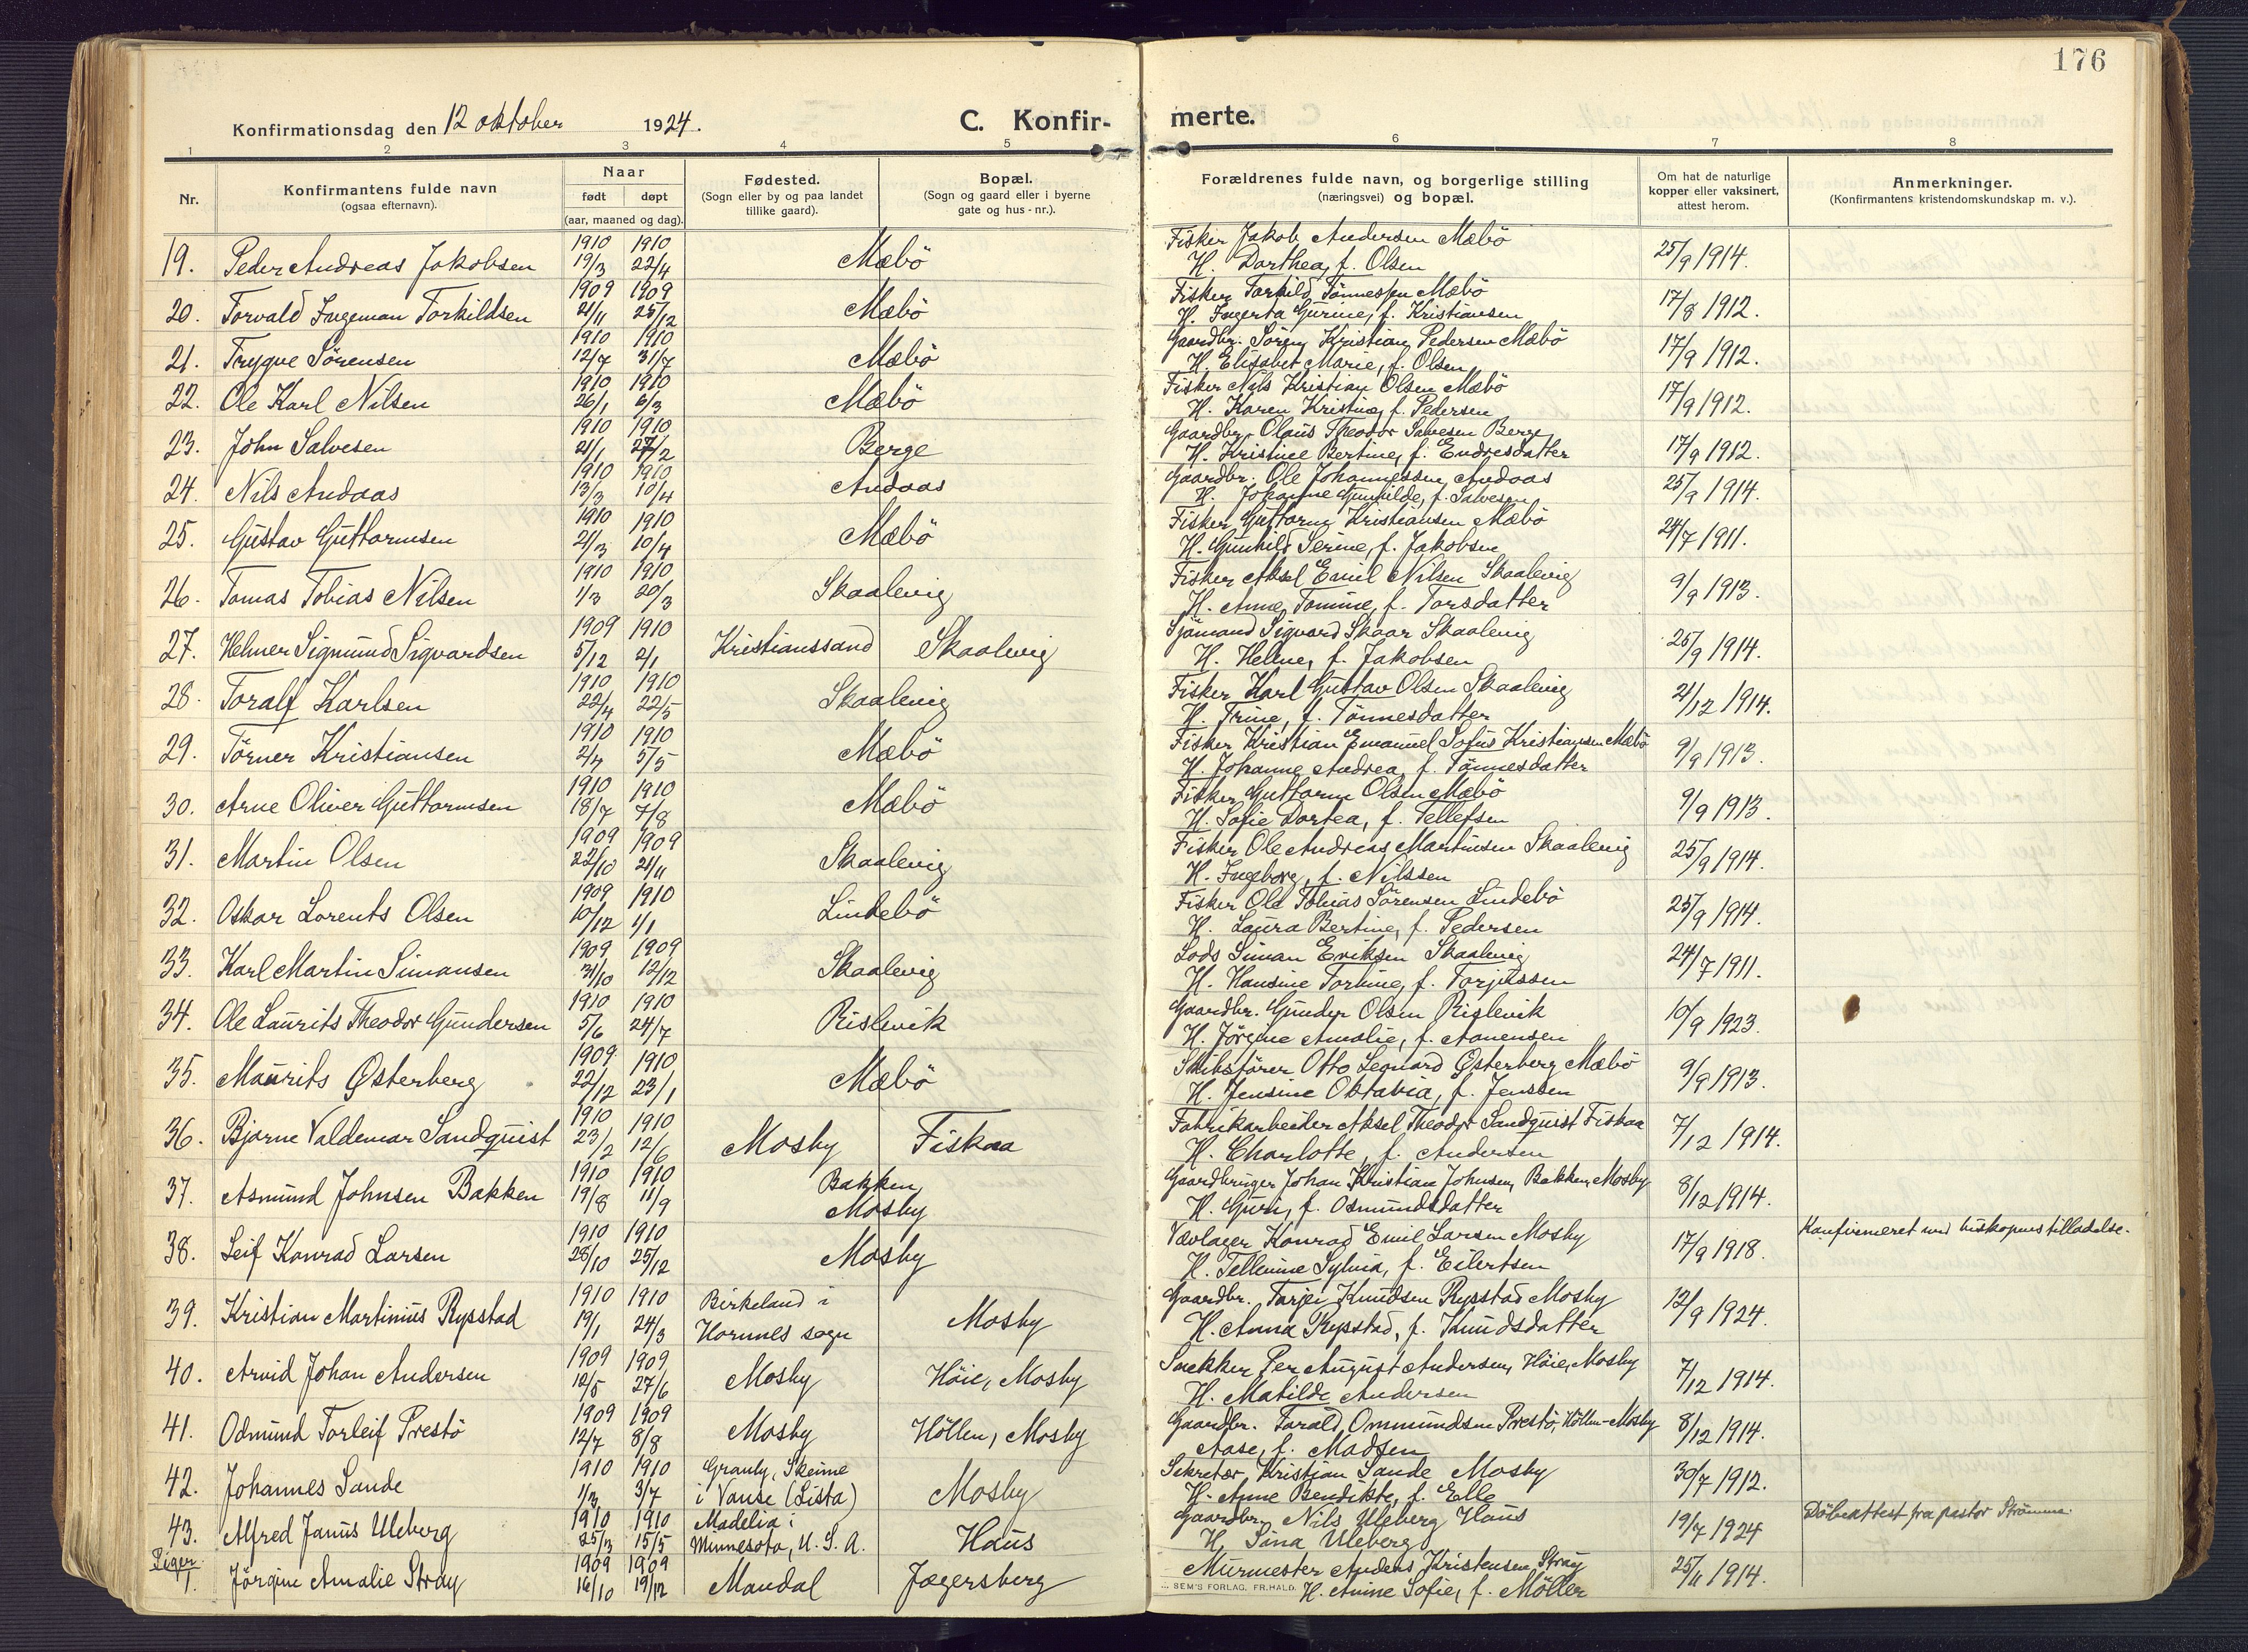 176
Konfirmationsdag den 12 oktober 1924.
C. Konfir-
merte.
1 2 3 4 5 6 7 8
Nr.
Konfirmantens fulde navn
(ogsaa efternavn).
Naar
født døpt
(aar, maaned og dag).
Fødested.
(Sogn eller by og paa landet
tillike gaard).
Bopæl.
(Sogn og gaard eller i byerne
gate og hus-nr.).
Forældrenes fulde navn, og borgerlige stilling
(næringsvei) og bopæl.
Om hat de naturlige
kopper eller vaksinert,
attest herom.
Anmerkninger.
(Konfirmantens kristendomskundskap m. v.).
1910 1910 Fisker Jakob Andersen Mæbö
19. Peder Andreas Jakobsen 19/3 22/4 Mæbö H. Dorthea, f. Olsen 25/9 1914.
1909 1909 Fisker Torkild Tönnessen Mæbö
20. Torvald Ingeman Torkildsen 21/11 25/12 Mæbö H. Ingerta Gurine, f. Kristiansen 17/8 1912.
1910 1910 Gaardbr. Sören Kristian Pedersen Mæbö
21. Trygve Sörensen 12/7 31/7 Mæbö H. Elisabet Marie, f. Olsen 17/9 1912.
1910 1910 Fisker Nils Kristian Olsen Mæbö
22. Ole Karl Nilsen 26/1 6/3 Mæbö H. Karen Kristine, f. Pedersen 17/9 1912.
1910 1910 Gaardbr. Olaus Theodor Salvesen Berge
23. John Salvesen 21/1 27/2 Berge H. Kristine Bertine, f. Endresdatter 17/9 1912.
1910 1910 Gaardbr. Ole Johannessen Andaas
24. Nils Andaas 13/3 10/4 Andaas H. Johanne Gunhilde, f. Salvesen 25/9 1914.
1910 1910 Fisker Guttorm Kristiansen Mæbö
25. Gustav Guttormsen 21/3 10/4 Mæbö H. Gunhild Serine, f. Jakobsen 24/7 1911.
1910 1910 Fisker Aksel Emil Nilsen Skaalevig
26. Tomas Tobias Nilsen 1/3 20/3 Skaalevig H. Anne Tomine, f. Torsdatter 9/9 1913.
1909 1910 Sjömand Sigvard Skaar Skaalevig
27. Helmer Sigmund Sigvardsen 5/12 2/1 Kristianssand Skaalevig H. Helene, f. Jakobsen 25/9 1914.
1910 1910 Fisker Karl Gustav Olsen Skaalevig
28. Toralf Karlsen 22/4 22/5 Skaalevig H. Trine, f. Tönnesdatter 21/12 1914.
1910 1910 Fisker Kristian Emanuel Sofus Kristiansen Mæbö
29. Törner Kristiansen 2/4 5/5 Mæbö H. Johanne Andrea, f. Tönnesdatter 9/9 1913.
1910 1910 Fisker Guttorm Olsen Mæbö
30. Arne Oliver Guttormsen 18/7 7/8 Mæbö H. Sofie Dortea, f. Tellefsen 9/9 1913.
1909 1909 Fisker Ole Andreas Martinsen Skaalevig
31. Martin Olsen 22/10 21/11 Skaalevig H. Ingeborg, f. Nilssen 25/9 1914.
1909 1910 Fisker Ole Tobias Sörensen Lindebö
32. Oskar Lorents Olsen 10/12 1/1 Lindebö H. Laura Bertine, f. Pedersen 25/9 1914.
1909 1909 Lods Simon Eriksen Skaalevig
33. Karl Martin Simonsen 31/10 12/12 Skaalevig H. Hansine Torline, f. Torjussen 24/7 1911.
1910 1910 Gaardbr. Gunder Olsen Rislevik
34. Ole Laurits Theodor Gundersen 5/6 24/7 Rislevik H. Jörgine Amalie, f. Aanensen 10/9 1923.
1909 1910 Skibsförer Otto Leonard Østerberg Mæbö
35. Maurits Østerberg 22/12 23/1 Mæbö H. Jensine Oktavia, f. Jenssen 9/9 1913.
1910 1910 Fabrikarbeider Aksel Theodor Sandquist Fiskaa
36. Bjarne Valdemar Sandquist 23/2 12/6 Mosby Fiskaa H. Charlotte, f. Andersen 7/12 1914.
1910 1910 Bakken, Gaardbruger Johan Kristian Johnsen, Bakken, Mosby
37. Asmund Johnsen Bakken 19/8 11/9 Mosby H. Guri, f. Osmundsdatter 8/12 1914.
1910 1910 Konrad Emil Larsen Mosby Konfirmeret med biskopens tilladelse.
38. Leif Konrad Larsen 28/10 25/12 Mosby H. Tellemine Sylvia, f. Eilertsen 17/9 1918.
1910 1910 Birkeland i Gaardbr. Tarjei Knudsen Rysstad Mosby
39. Kristian Martinius Rysstad 19/1 24/3 Hornnes sogn Mosby H. Anna Rysstad, f. Knudsdatter 12/9 1924.
1909 1909 Snekker Per August Andersen, Höie, Mosby
40. Arvid Johan Andersen 12/5 27/6 Mosby Höie, Mosby H. Matilde Andersen 7/12 1914.
1909 1909 Gaardbr. Torald Ommundsen Prestö, Höllen-Mosby
41. Odmund Torleif Prestö 12/7 8/8 Mosby Höllen, Mosby Aase, f. Madsen 8/12 1914.
1910 1910 Skeime Sekretær Kristian Sande Mosby
42. Johannes Sande 1/3 3/7 i Vanse (Lista) Mosby H. Anne Bendikte, f. Elle 30/7 1912.
1910 1910 Madelia i Gaardbr. Nils Uleberg Haus Döbeattest fra pastor Strömme.
43. Alfred Janus Uleberg 25/3 15/5 Minnesota, U.S.A. Haus H. Sina Uleberg 19/7 1924
Piger. 1909 1909 Murmester Anders Kristensen Stray
1. Jörgine Amalie Stray 16/10 19/12 Mandal Jægersberg H. Anine Sofie, f. Möller 25/11 1914.
SEM'S FORLAG, FR.HALD.